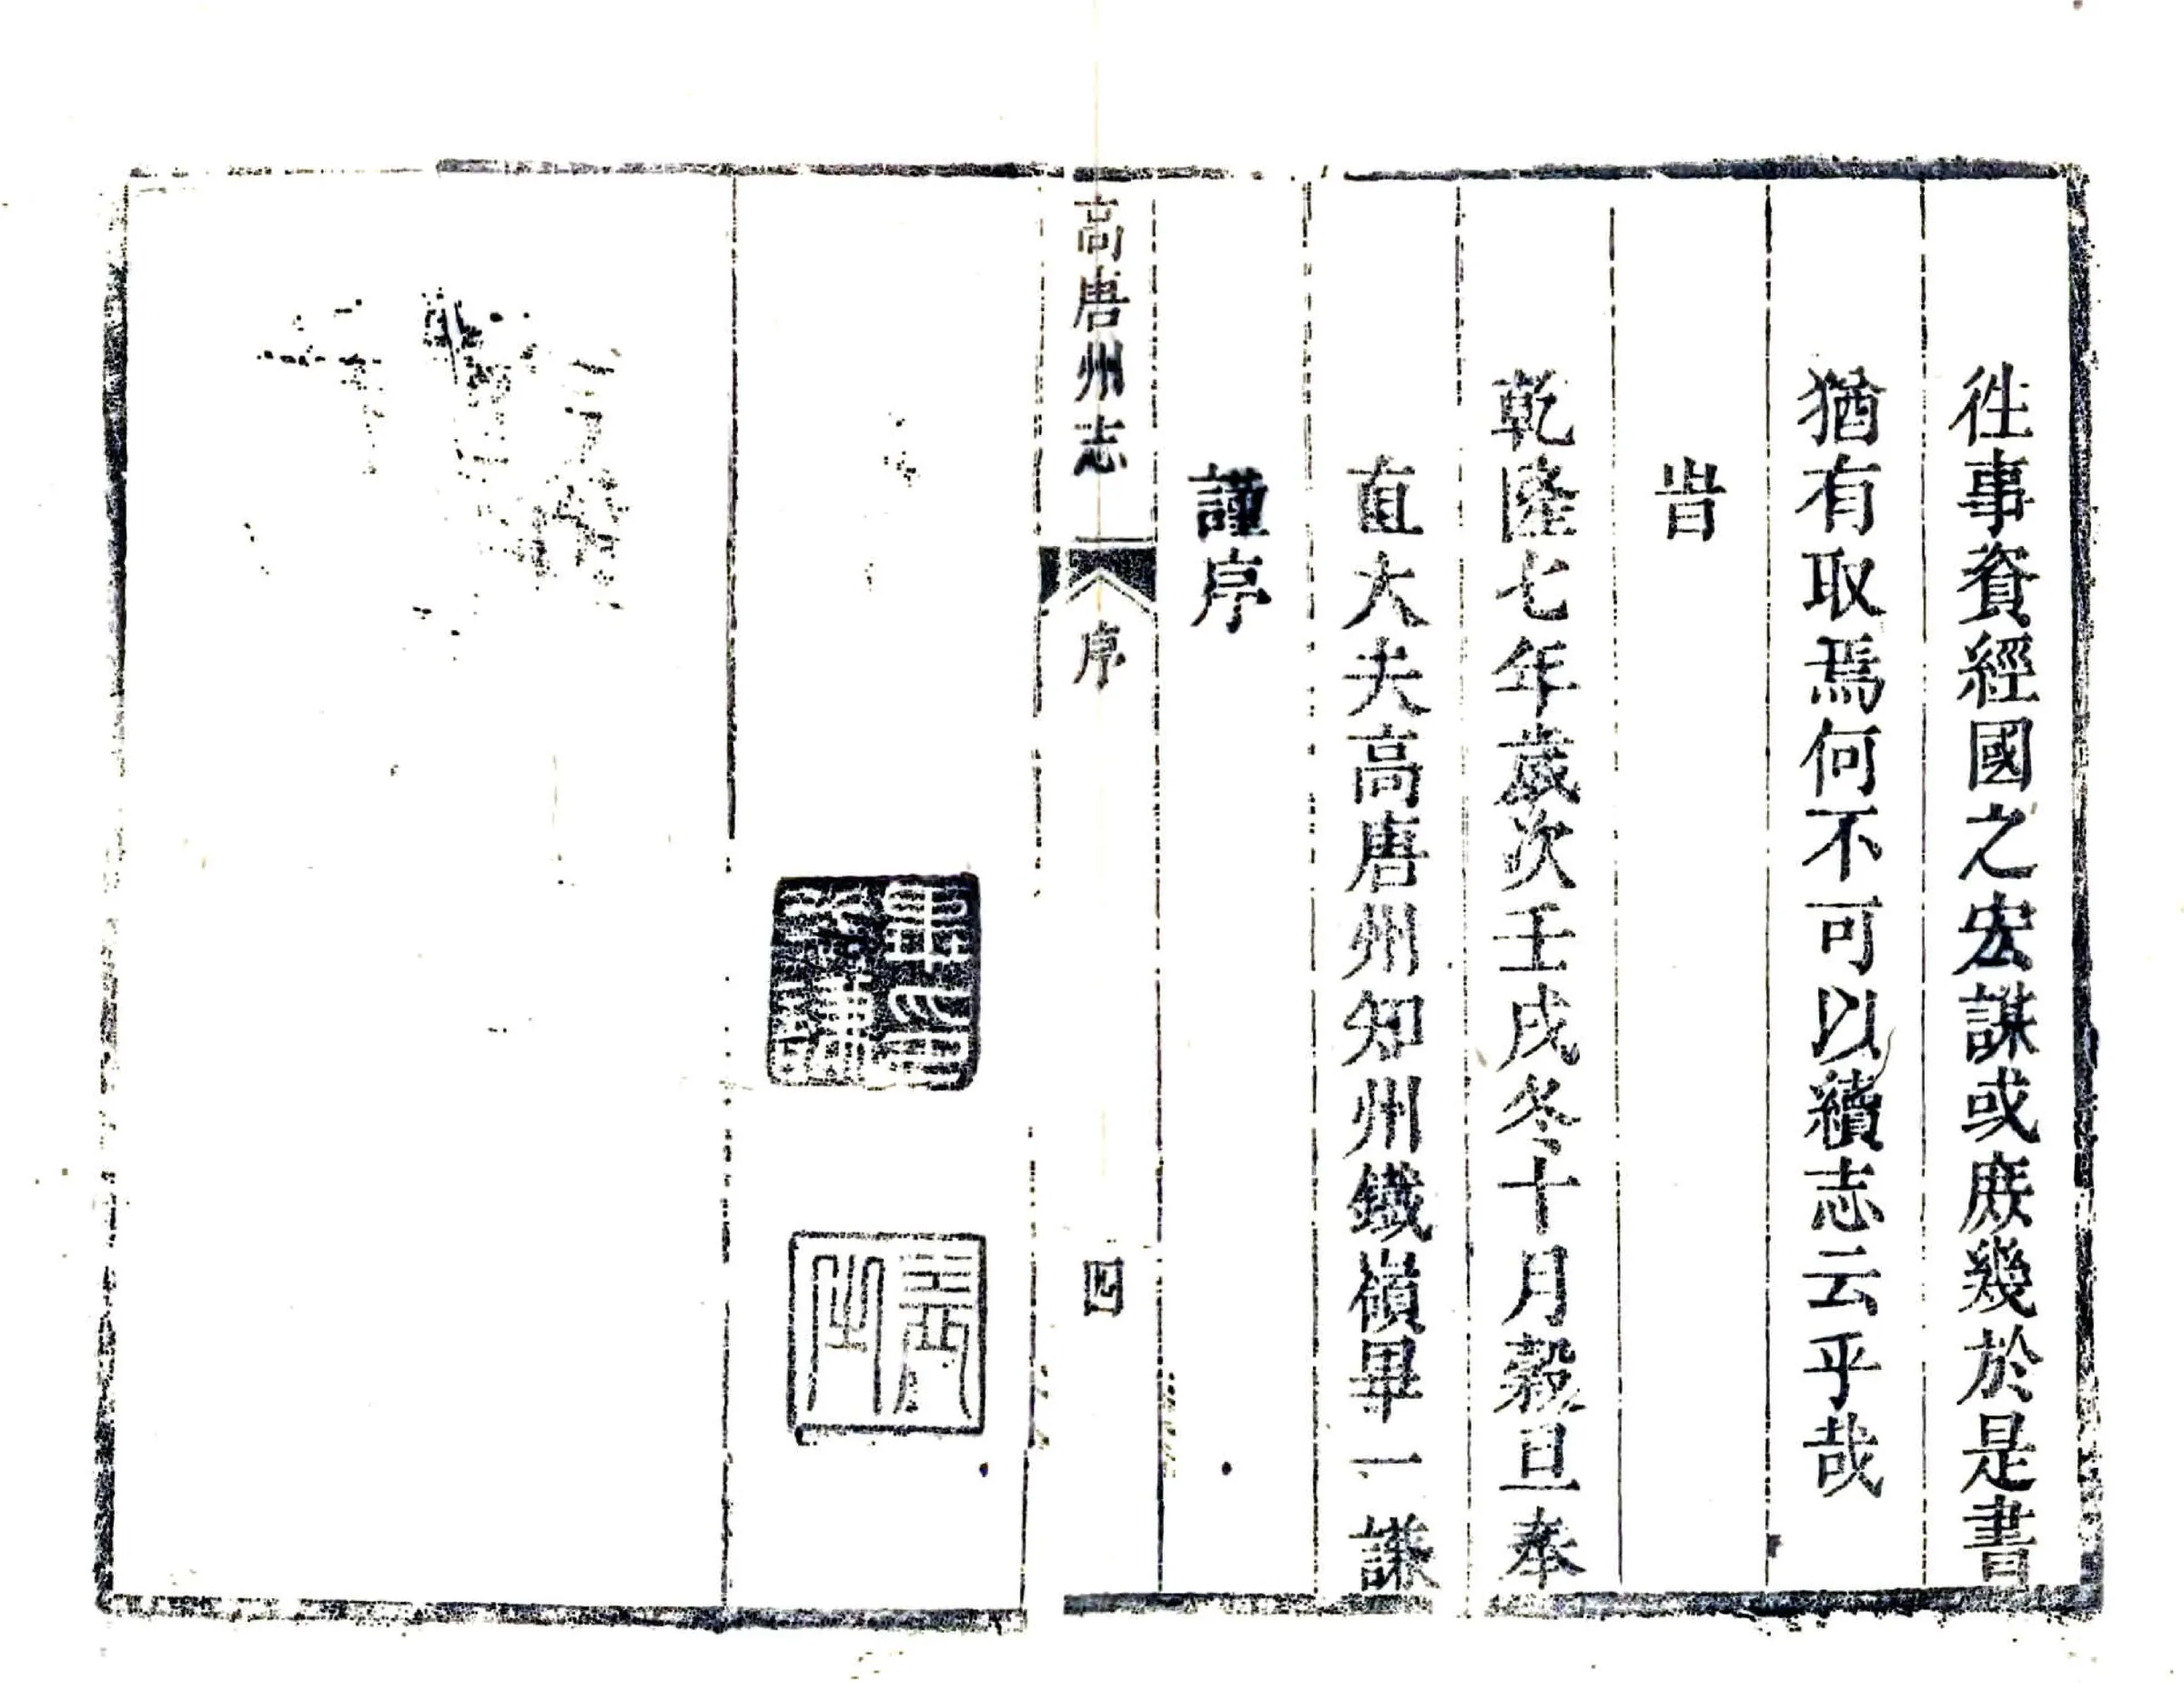 徃事資經國之宏謀或庻幾於是書
猶有取焉何不可以續志云乎哉
旹
乾隆七年歲次壬戌冬十月穀旦奉
直大夫高唐州知州鐵嶺畢一謙
謹序
高唐州志
序
四
畢印
一謙